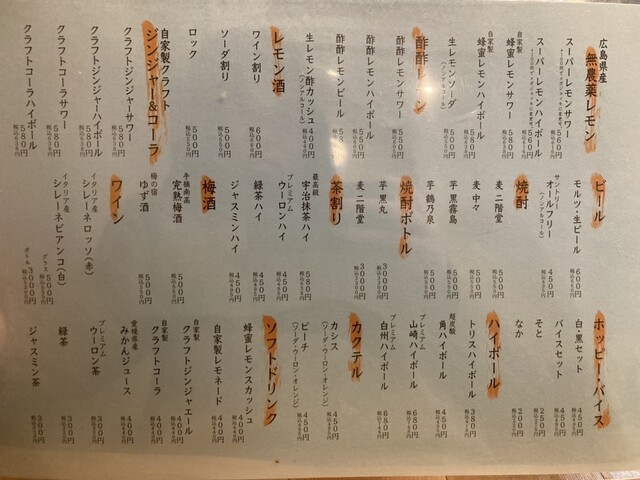 広島県産
無農薬レモン
スーパーレモンサワー
560円
スーパーレモンハイボール
560円
自家製
蜂蜜レモンサワー
580円
自家製
蜂蜜レモンハイボール
580円
生レモンソーダ
(ノンアルコール)
500円
酢酢レモン
酢酢レモンサワー
550円
酢酢レモンハイボール
550円
酢酢レモンビール
生レモン酢カッシュ
(ノンアルコール)
400円
レモン酒
ワイン割り
600円
ソーダ割り
500円
ロック
500円
自家製クラフト
ジンジャー&コーラ
クラフトジンジャーサワー
580円
クラフトジンジャーハイボール
580円
クラフトコーラサワー
580円
クラフトコーラハイボール
580円
ビール
モルツ・生ビール
600円
サントリー
オールフリー
(ノンアルコール)
450円
焼酎
麦 二階堂
500円
麦 中々
500円
芋 黒霧島
500円
芋 鶴乃泉
500円
焼酎ボトル
芋 黒丸
3000円
麦 二階堂
3000円
茶割り
最高級
宇治抹茶ハイ
580円
プレミアム
ウーロンハイ
450円
緑茶ハイ
450円
ジャスミンハイ
450円
梅酒
手摘南高
完熟梅酒
500円
梅の宿
ゆず酒
500円
ワイン
イタリア産
シレーネロッソ(赤)
イタリア産
シレーネビアンコ(白)
グラス 500円
ボトル 3000円
ホッピー・バイス
白・黒セット
450円
バイスセット
450円
そと
250円
なか
200円
ハイボール
トリスハイボール
380円
超炭酸
角ハイボール
450円
プレミアム
山崎ハイボール
680円
プレミアム
白州ハイボール
680円
カクテル
カシス
(ソーダ・ウーロン・オレンジ)
450円
ピーチ
(ソーダ・ウーロン・オレンジ)
450円
ソフトドリンク
蜂蜜レモンスカッシュ
400円
自家製レモネード
400円
自家製
クラフトジンジャエール
400円
自家製
クラフトコーラ
400円
愛媛県産
みかんジュース
400円
プレミアム
ウーロン茶
300円
緑茶
300円
ジャスミン茶
300円